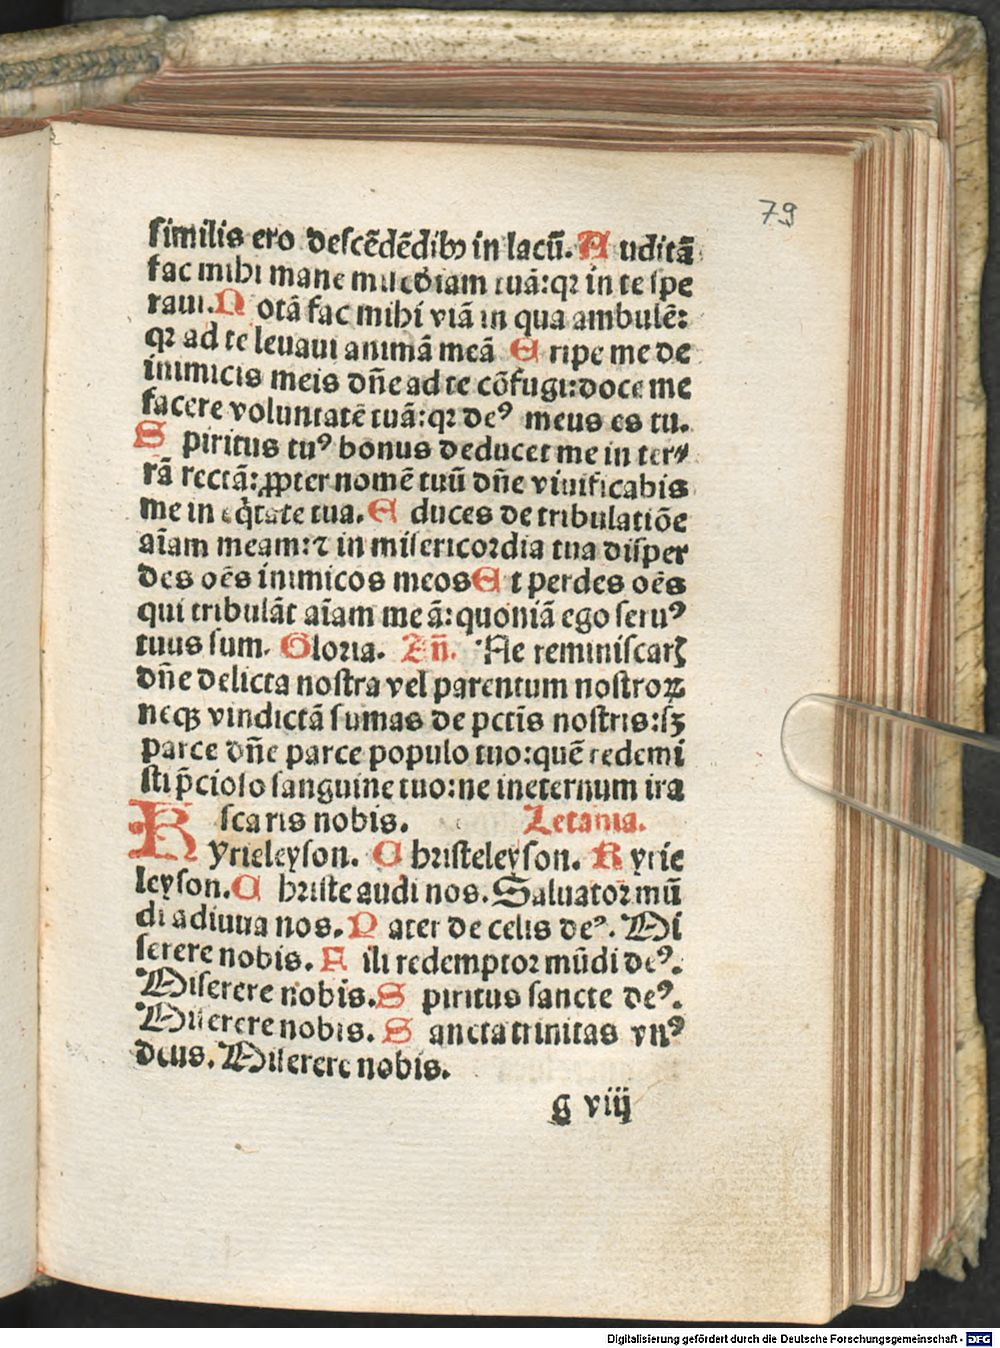 79
similis ero descēdēdibꝰ in lacū. Auditā
fac mihi mane mīcdiam tuā:qꝛ in te spe
raui. Notā fac mihi viā in qua ambulē:
qꝛ ad te leuaui animā meā Eripe me de
inimicis meis dn̄e ad te cōfugi:doce me
facere voluntatē tuā:qꝛ deꝰ meus es tu.
Spiritus tuꝰ bonus deducet me in ter⸗
rā rectā:ꝓpter nomē tuū dn̄e viuificabis
me in eq̇tate tua. Educes de tribulatiōe
aīam meam:⁊ in misericoꝛdia tua disper
des oēs inimicos meos Et perdes oēs
qui tribulāt aīam meā:quoniā ego seruꝰ
tuus sum. Gloꝛia. An̄. Ne reminiscarꝭ
dn̄e delicta nostra vel parentum nostroꝝ
neqꝫ vindictā sumas de pctīs nostris:sꝫ
parce dn̄e parce populo tuo:quē redemi
sti p̄cioso sanguine tuo:ne ineternum ira
scaris nobis. Letania.
Kyrieleyson. Christeleyson. Kyrie
leyson. Christe audi nos. Saluatoꝛ mū
di adiuua nos. Pater de celis deꝰ. Mi
serere nobis. Fili redemptoꝛ mūdi deꝰ.
Miserere nobis. Spiritus sancte deꝰ.
Miserere nobis. Sancta trinitas vnꝰ
deus. Miserere nobis.
g viij
Digitalisierung gefördert durch die Deutsche Forschungsgemeinschaft - DFG